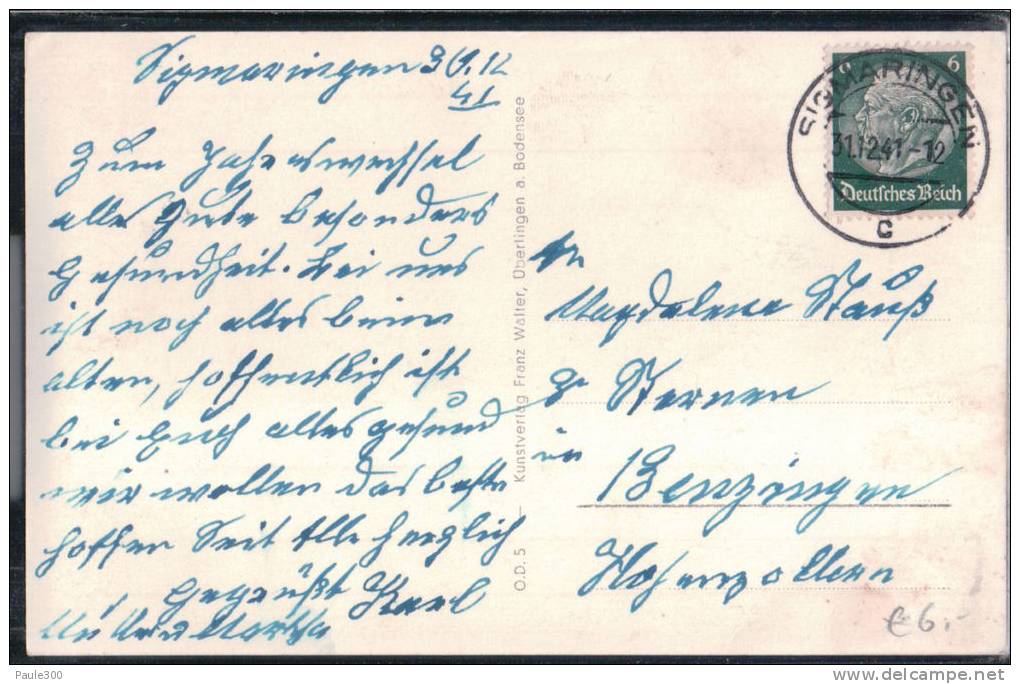 Sigmaringen 30.12
41
Zum Jahreswechsel
alles Gute besonders
Gesundheit. bei uns
ist noch alles beim
alten, hoffentlich ist
bei Euch alles gesund
wir wollen das beste
hoffen Seit Alle herzlich
Gegrüßt Karl
Martha
O.D. 5 Kunstverlag Franz Walter, Überlingen a. Bodensee
6
SIGMARINGEN
31.12.41-12
Deutsches Reich
c
An
Magdalena Stauß
z. Sternen
in
Benzingen
Hohenzollern
€ 6.-
Paule300
delcampe.net